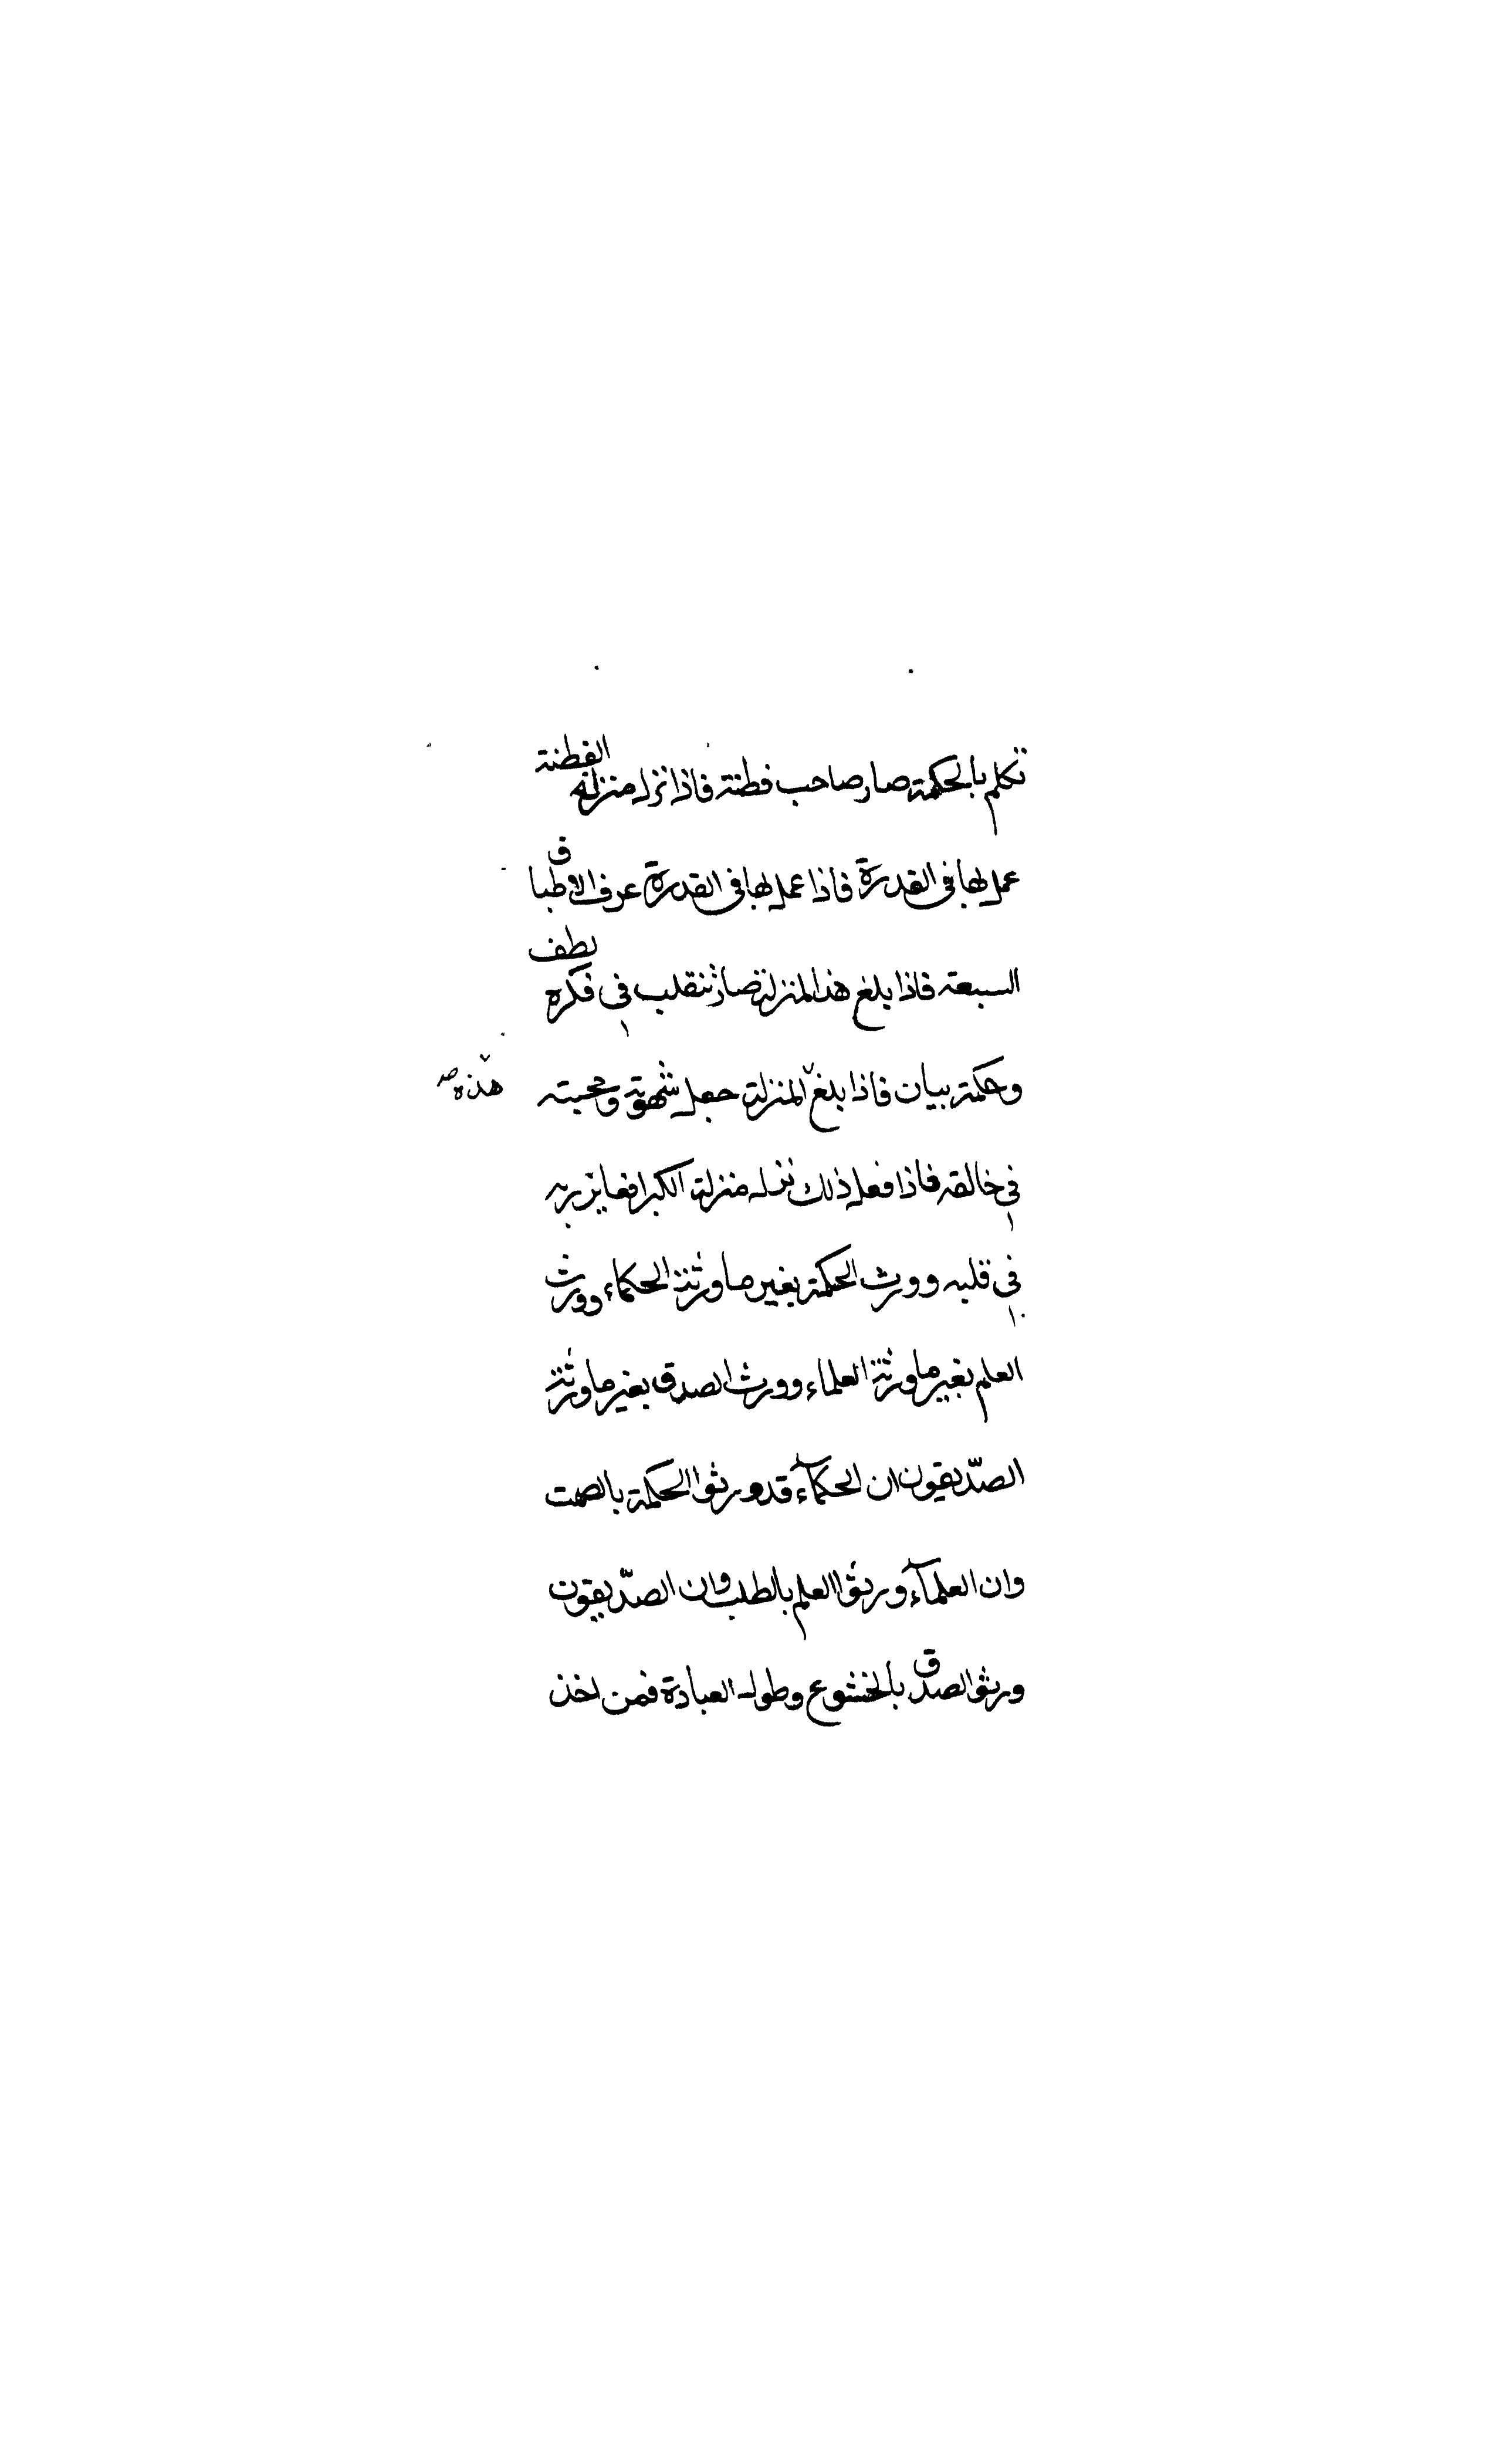 تكلم بالحكمة صار صاحب فطنة فاذا نزل منزلة الفطنة
عمل لها فى القدرة فاذا عمل لها فى القدرة عرف الاطباق
السبعة فاذا بلغ هذا المنزلة صار تنقلب فى فكره بلطف
وحكمة بيان فاذا بلغ المنزلة جعل شهوته ومحبته
هذه صح
فى خالقه فاذا فعل ذلك نزل منزلة الكبرا فعاين ربه
فى قلبه وورث الحكمة بغير ما ورثته الحكماء وورث
العلم بغير ما ورثته العلماء وورث الصدق بغير ما ورثته
الصّديقون ان الحكمآء قد ورثوا الحكمة بالصمت
وان العلمآء ورثوا العلم بالطلب وان الصّديقون
ورثوا الصدق بالخشوع وطول العبادة فمن اخذ